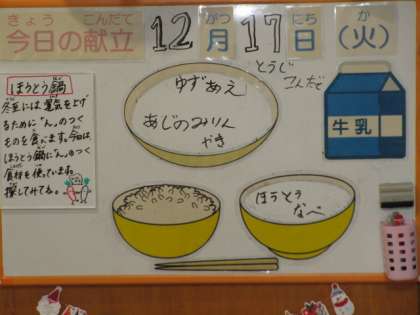 きょう こんだて がつ にち か
今日の献立 12月17日(火)
とうじ
こんだて
ゆずあえ
あじのみりん
やき
牛乳
ほうとう
なべ
ほうとう鍋
冬至には運気を上げ
るために"ん"のつく
ものを食べます。今日は、
ほうとう鍋に"ん"のつく
食材を使っています。
探してみてね。